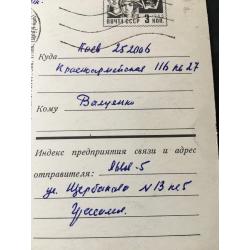 ПОЧТА СССР 3 КОП.
Куда Киев 252006
Красноармейская 116 кв 27
Кому Валуенко
Индекс предприятия связи и адрес
отправителя: -5
ул. Щербакова N 13 кв 5